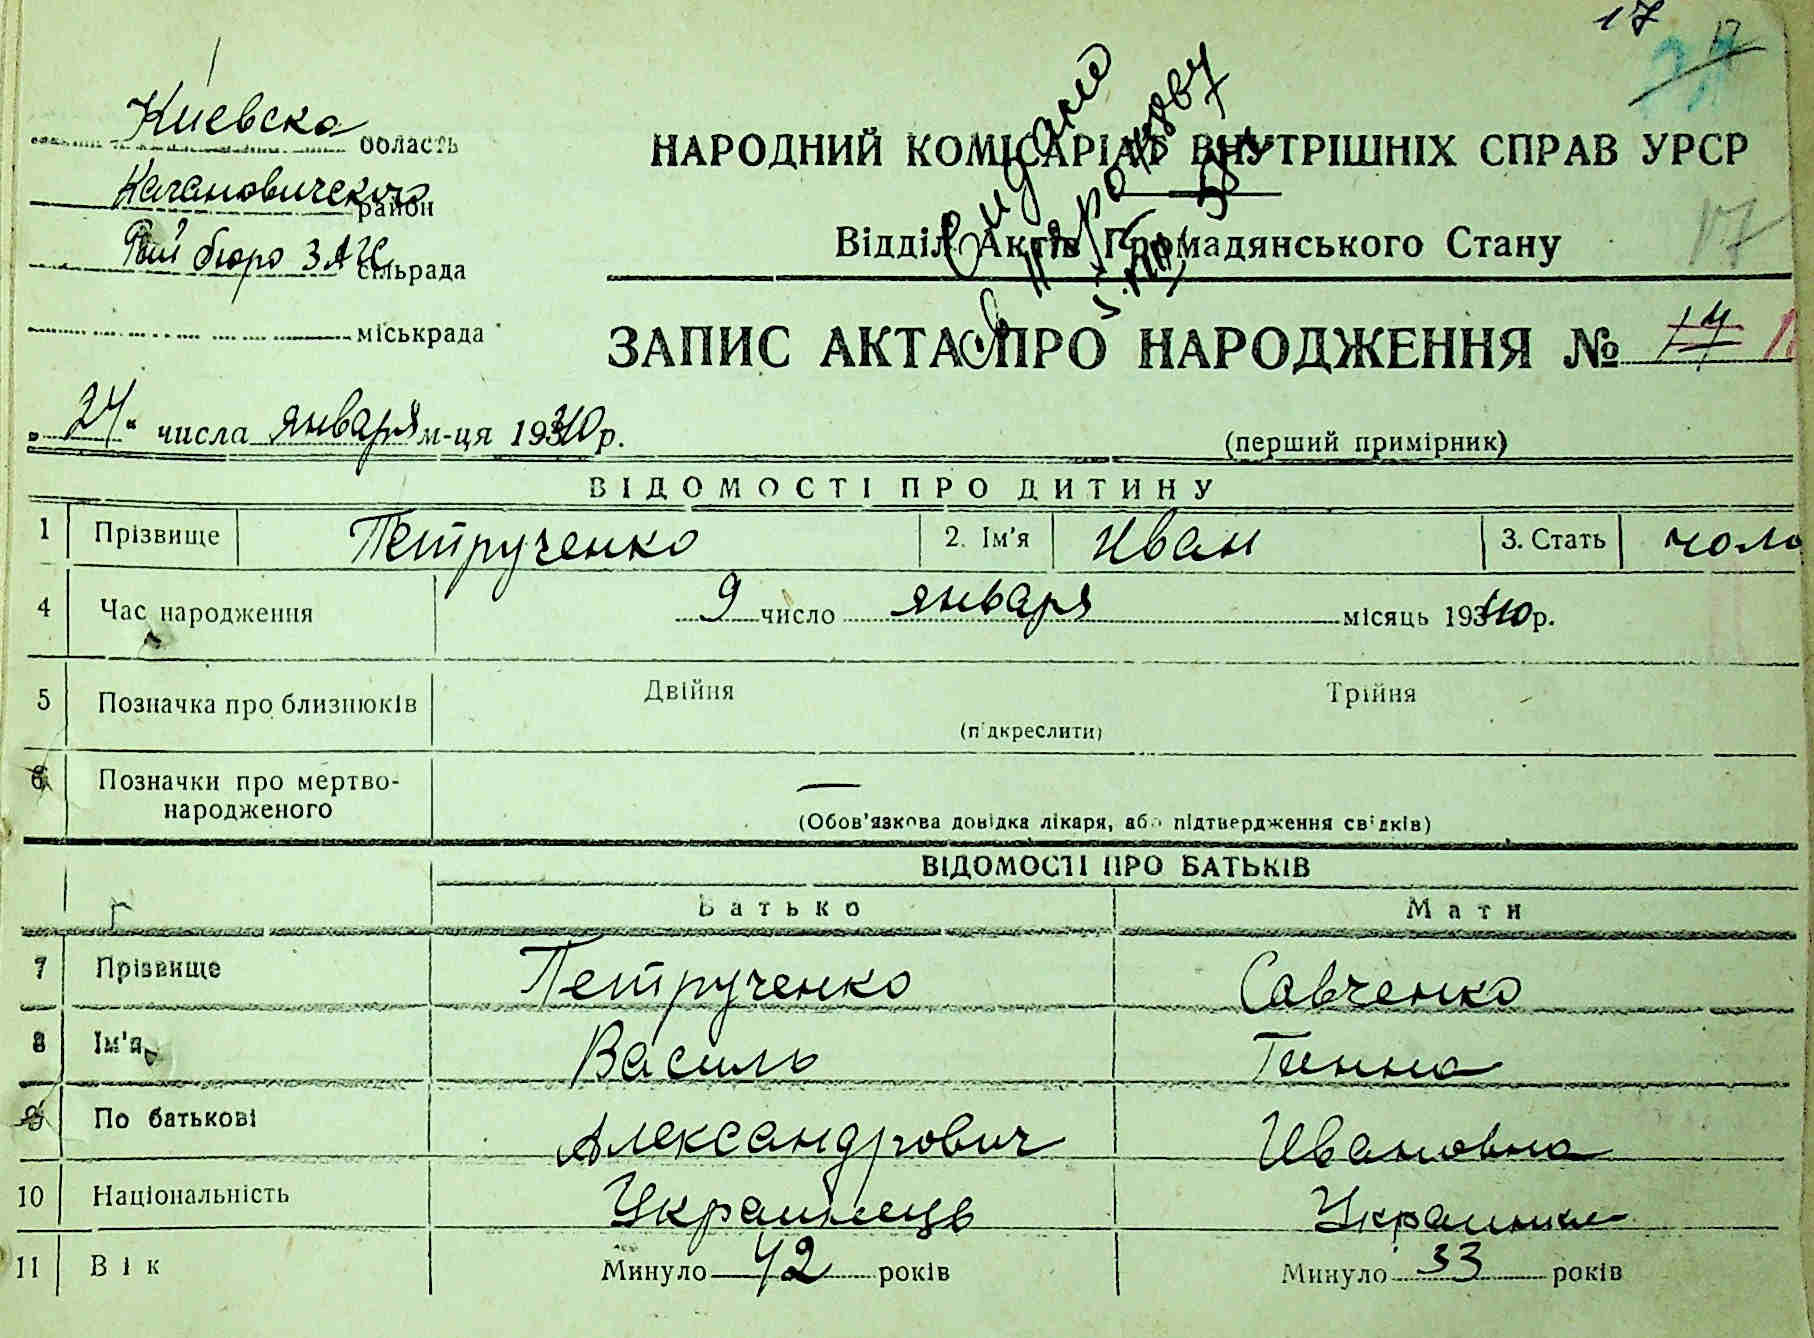 17
17
Киевска область
НАРОДНИЙ КОМІСАРІАТ ВНУТРІШНІХ СПРАВ УРСР
Кагановичского район
17
Рай бюро ЗАГС сільрада
Відділ Актів Громадянського Стану
міськрада
ЗАПИС АКТА ПРО НАРОДЖЕННЯ № 17
„24“ числа января м-ця 1940 р.
(перший примірник)
ВІДОМОСТІ ПРО ДИТИНУ
1 Прізвище Петрученко 2. Ім'я Иван 3. Стать чоло
4 Час народження 9 число января місяць 1940 р.
5 Позначка про близнюків Двійня Трійня
(підкреслити)
6 Позначки про мертво-
народженого —
(Обов'язкова довідка лікаря, або підтвердження свідків)
ВІДОМОСТІ ПРО БАТЬКІВ
Батько Мати
7 Прізвище Петрученко Савченко
8 Ім'я Василь Ганна
9 По батькові Александрович Ивановна
10 Національність Украинець Украинка
11 Вік Минуло 42 років Минуло 33 років